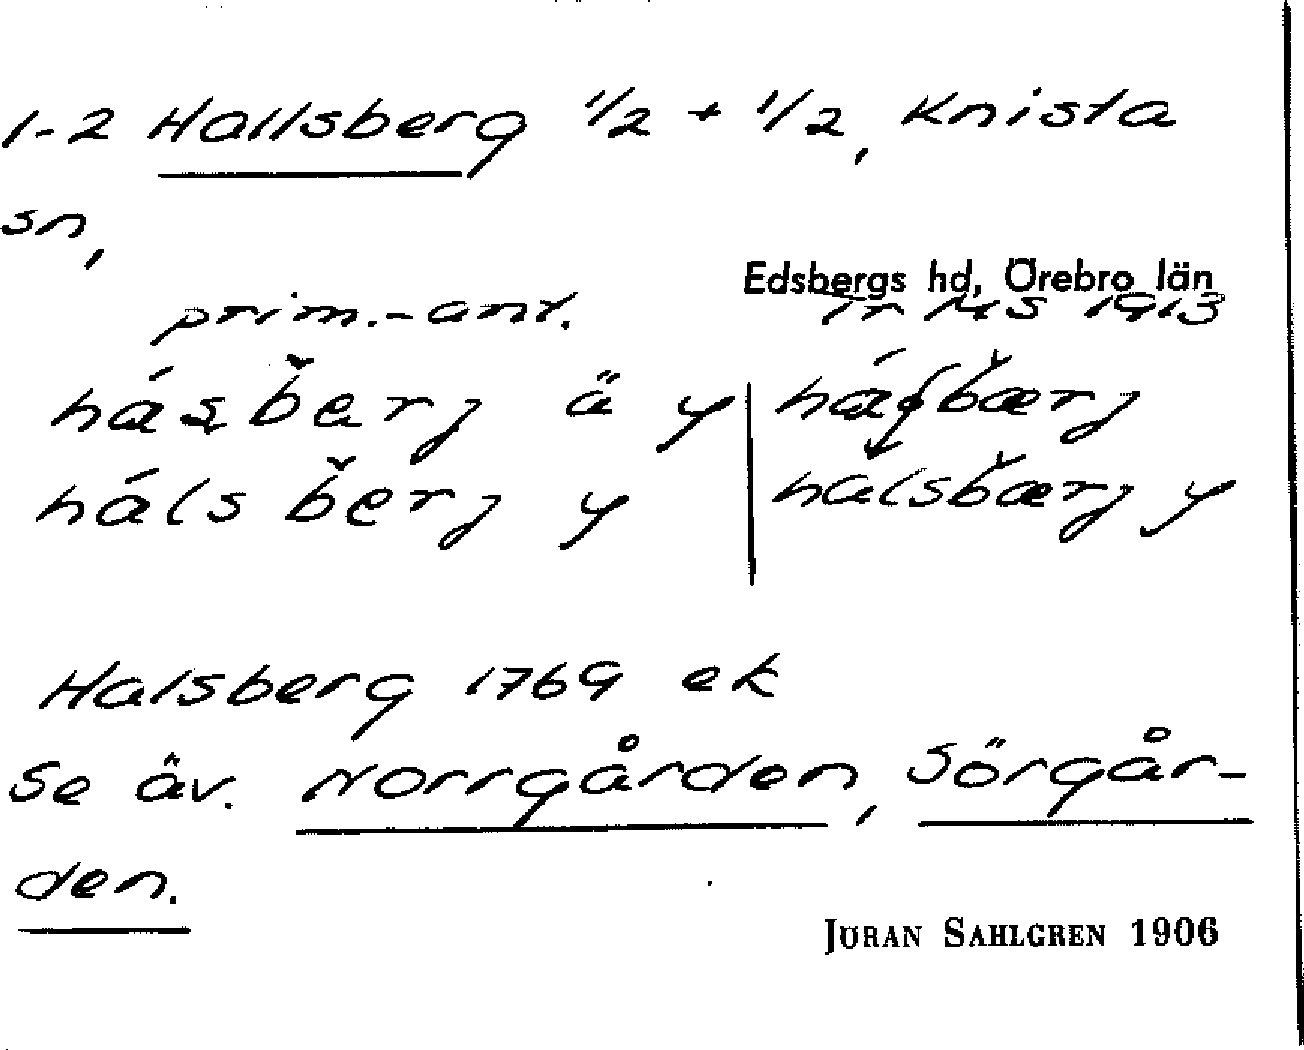 1-2 Hallsberg 1/2 + 1/2, Knista
sn,
Edsbergs hd, Örebro län
prim.-ant. Tr MS 1913
hásb̆erj ä y
hálsb̆erj y | halsb̆ærj y
Halsberg 1769 ek
Se äv. Norrgården, Sörgår-
den.
JÖRAN SAHLGREN 1906